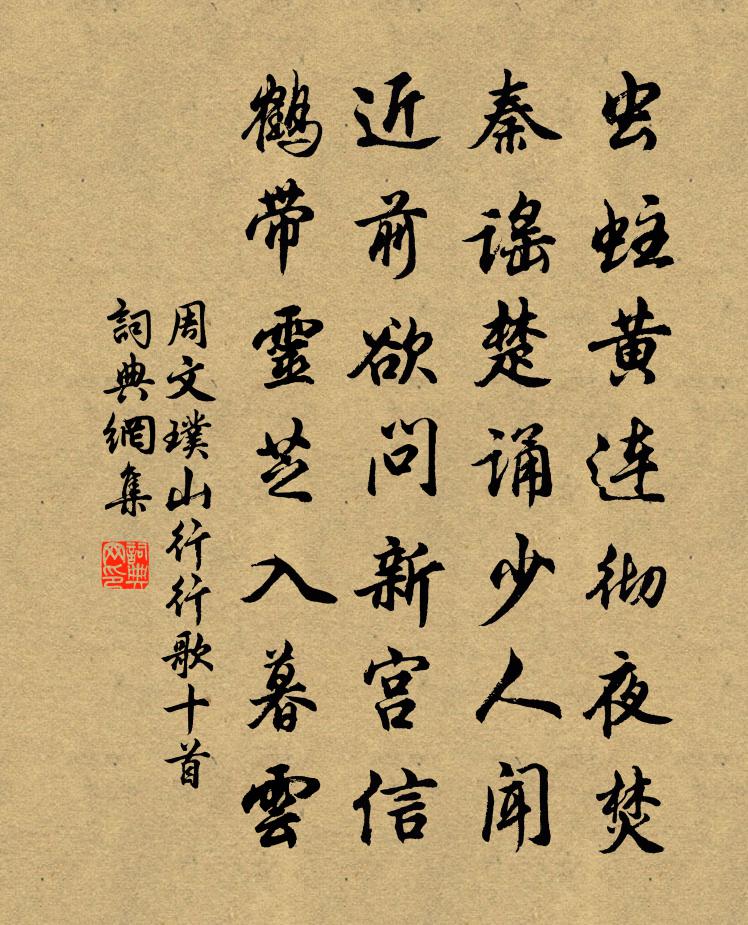 虫蛀黄连彻夜焚
秦謡楚诵少人闻
近前欲问新宫信
鹤带靈芝入暮雲
周文璞山行行歌十首
詞典網集
詞典网印